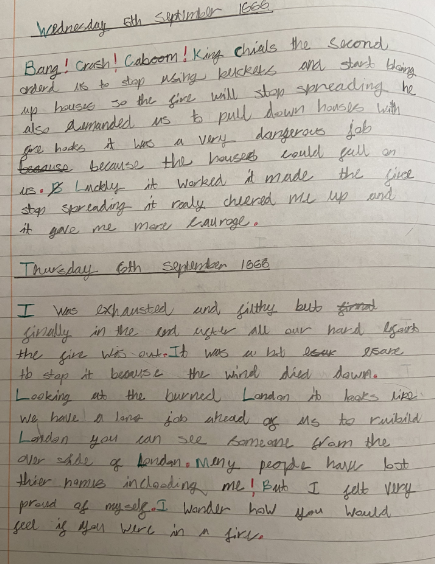 Wednesday 5th September 1666
Bang! Crash! Caboom! King chials the Second
orderd us to stop using buckets and start bloing
up houses so the fire will stop spreading he
also demanded us to pull down houses with
fire hooks it was a very dangerous job
because because the houses could fall on
us. Luckly it worked it made the fire
stop spreading it realy cheered me up and
it gave me more caurage.
Thursday 6th September 1666
I was exhausted and filthy but
finally in the end after all our hard
the fire was out. It was a bit
to stop it because the wind died down.
Looking at the burned London it looks like
we have a long job ahead of us to
London you can see someone from the
over side of London. Meny people have lost
thier homes inclooding me! But I felt very
proud of myself. I wonder how you would
feel if you were in a fire.